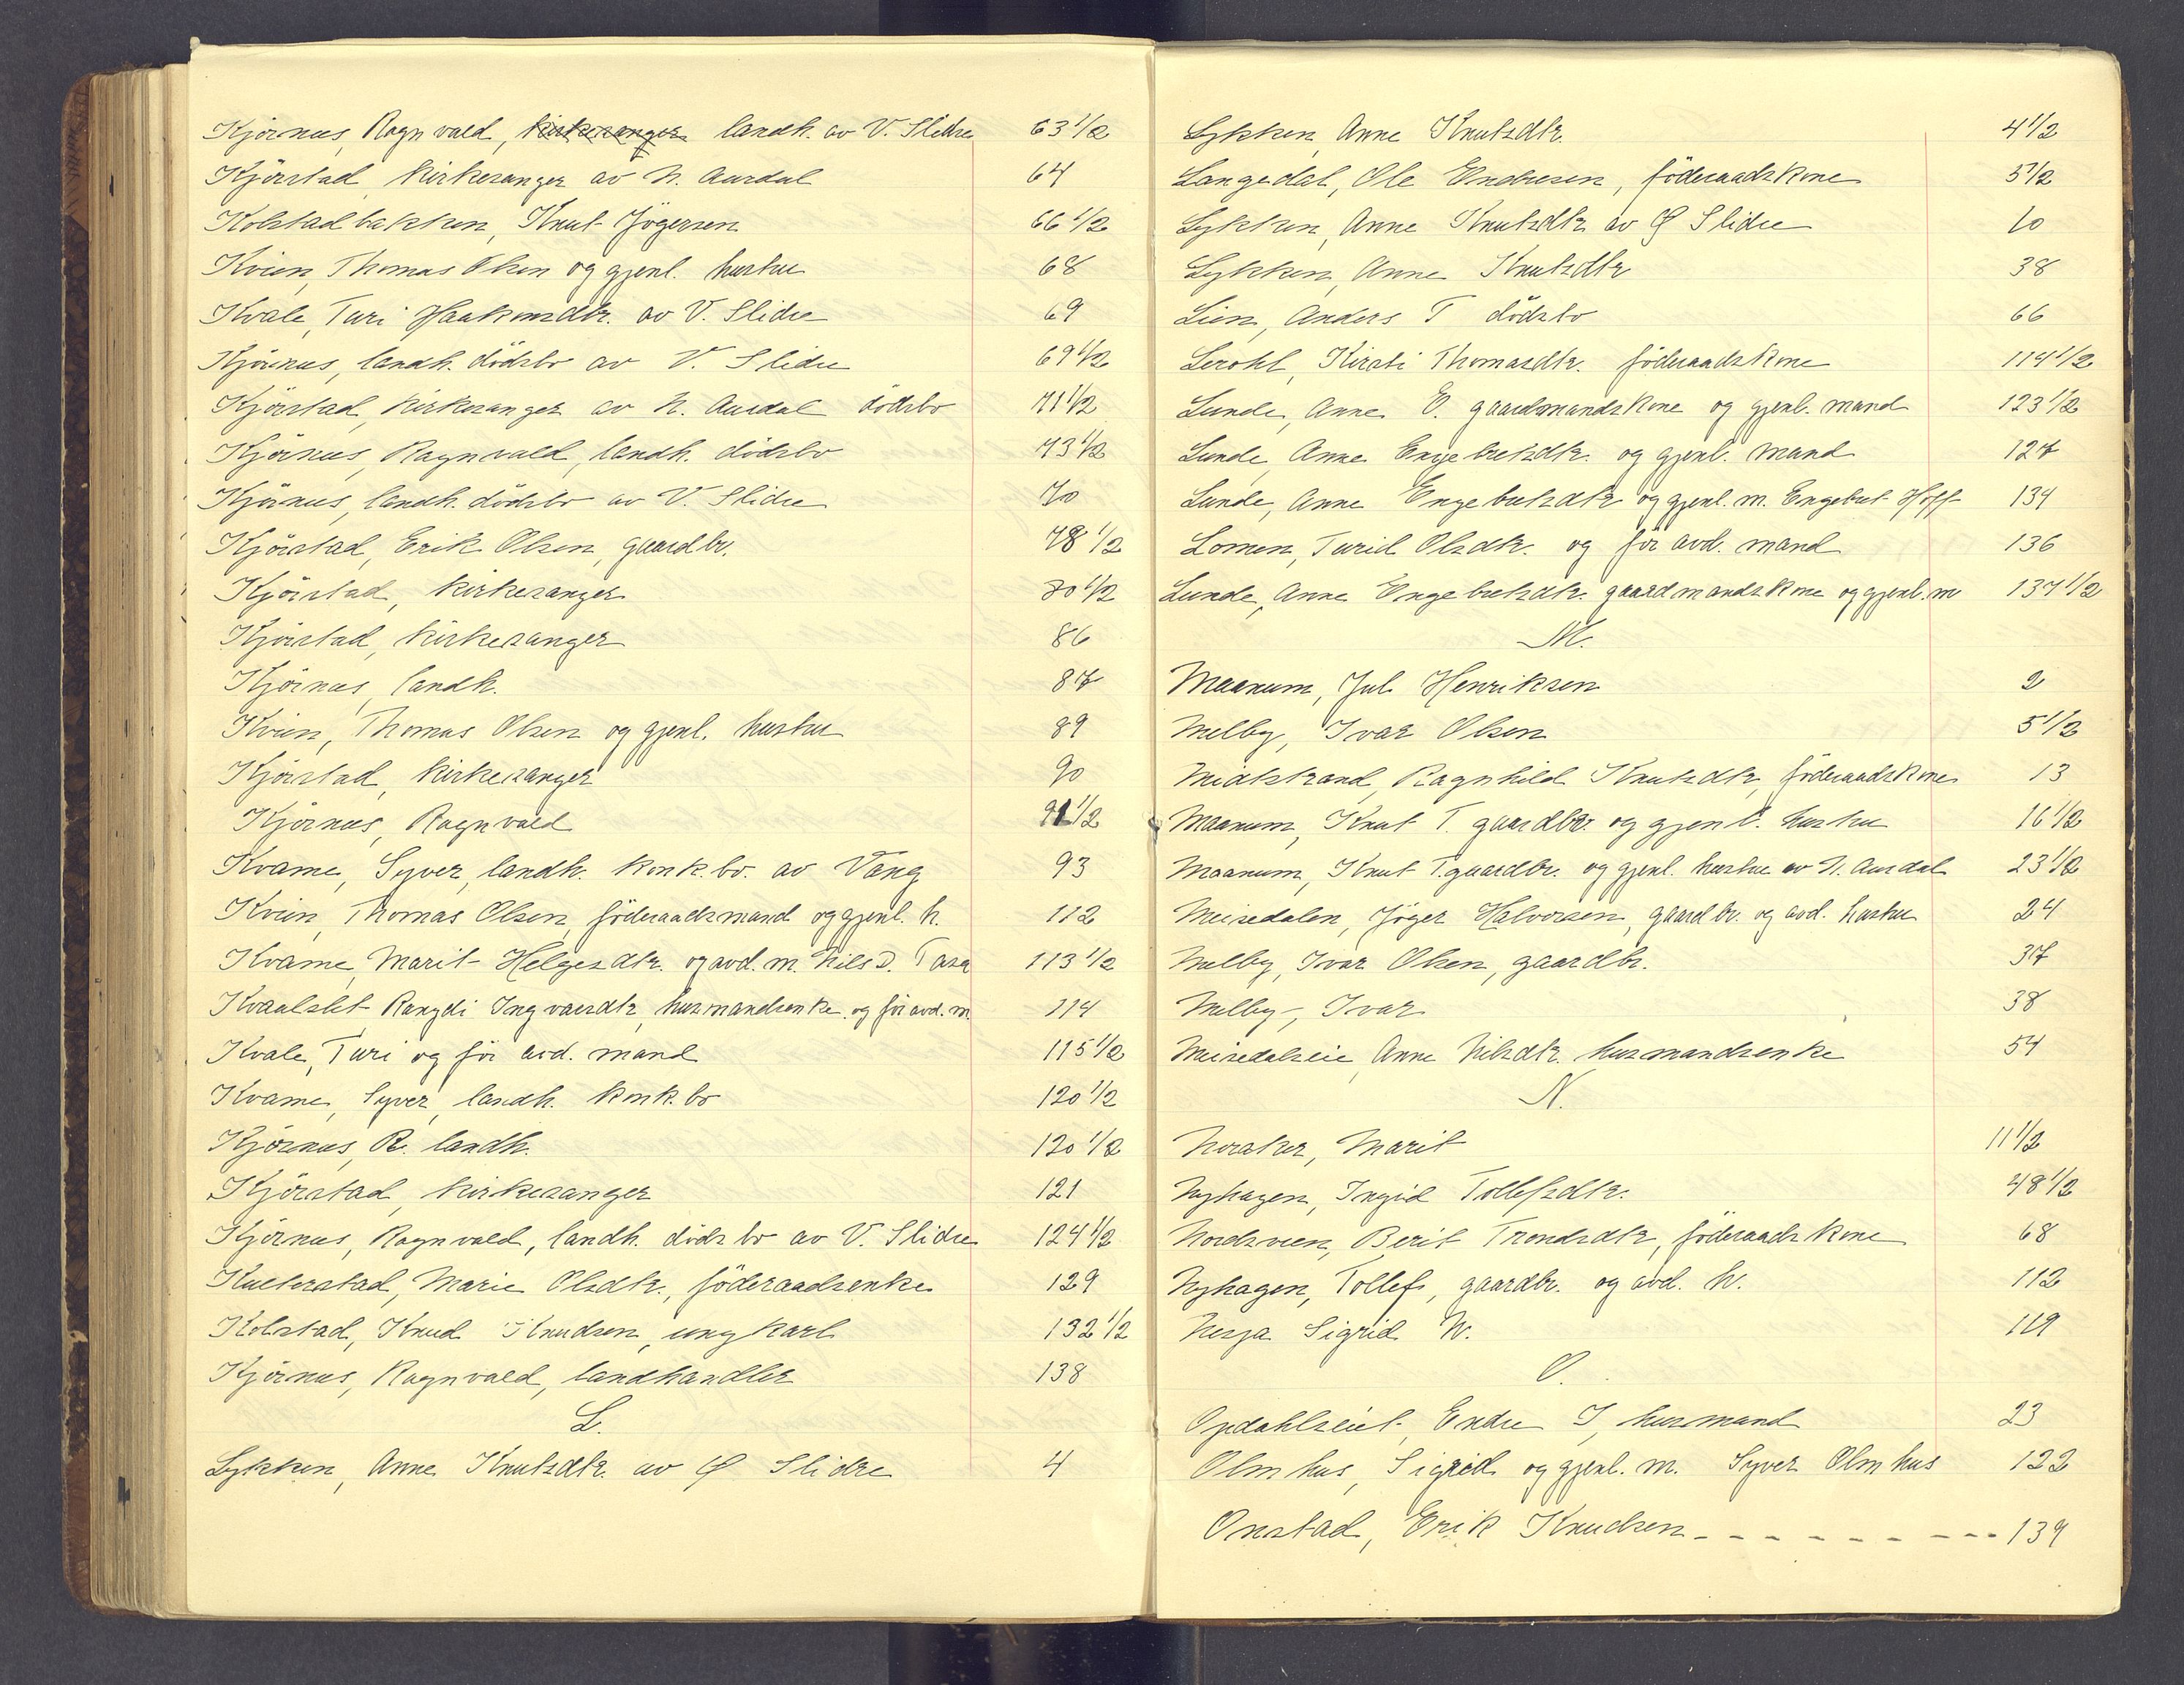 Kjörnes, Ragnvald, kirkesanger landh. av V. Slidre 63 1/2
Kjörstad kirkesanger av N. Aurdal 64
Kolstadbakken, Knut Jögersen 66 1/2
Kvien, Thomas Olsen og gjenl. hustru 68
Kvale, Turi Haakensdtr. av V. Slidre 69
Kjörnes, landh. dödsbo av V. Slidre 69 1/2
Kjörstad, kirkesanger av N. Aurdal dödsbo 71 1/2
Kjörnes, Ragnvald, landh. dödsbo 73 1/2
Kjörnes, landh. dödsbo av V. Slidre 70
Kjörstad, Erik Olsen, gaardbr. 78 1/2
Kjörstad, kirkesanger 1/2
Kjörstad, kirkesanger 86
Kjörnes, landh. 87
Kvien, Thomas Olsen og gjenl. hustru 89
Kjörstad, kirkesanger 90
Kjörnes, Ragnvald 91 1/2
Kvame, Syver, landh. konk.bo. av Vang 93
Kvien, Thomas Olsen, föderaadsmand og gjenl. h. 112
Kvame, Marit Helgesdtr. og avd. m. Nils D. Tasa 113 1/2
Kvaalslet Rangdi Ingvarsdtr, husmandsenke. og för avd. m. 114
Kvale, Turi og för avd. mand 115 1/2
Kvame, Syver, landh. konk.bo 120 1/2
Kjörnes, R. landh. 120 1/2
Kjörstad, kirkesanger 121
Kjörnes, Ragnvald, landh. dödsbo av V. Slidre 124 1/2
Marie Olsdtr., föderaadsenke 129
Kolstad, Knud Knudsen, ungkarl 132 1/2
Kjörnes, Ragnvald, landhandler 138
L.
Lykken, Anne Knutsdtr. av Ø Slidre 4
Lykken, Anne Knutsdtr. 4 1/2
Langedal, Ole Endresen, föderaadskone 5 1/2
Lykken, Anne Knutsdtr av Ø Slidre 10
Lykken, Anne Knutsdtr 38
Lien, Anders T dödsbo 66
Lerohl, Kirsti Thomasdtr. föderaadskone 114 1/2
Lunde, Anne E. gaardmandskone og gjenl. mand 123 1/2
Lunde, Anne Engebretsdtr. og gjenl. mand 127
Lunde, Anne Engebretsdtr og gjenl. m. Engebret Hoff 134
Lomen, Turid Olsdtr. og för avd. mand 136
Lunde, Anne Engebretsdtr. gaardmandskone og gjenl. m 137 1/2
M.
Maanum, Jul Henriksen 2
Melby, Ivar Olsen 5 1/2
Midtstrand, Ragnhild Knutsdtr, föderaadskone 13
Maanum, Knut T. gaardbr. og gjenl. hustru 16 1/2
Maanum, Knut T. gaardbr. og gjenl. hustru av N. Aurdal 23 1/2
Meisedalen, Jöger Halvorsen, gaardbr. og avd. hustru 24
Melby, Ivar Olsen, gaardbr. 37
Melby, Ivar 38
Meisedalseie, Anne Nilsdtr. husmandsenke 54
N.
Noraker, Marit 11 1/2
Nyhagen, Ingrid Tollefsdtr. 48 1/2
Nordsveen, Berit Trondsdtr, föderaadskone 68
Nyhagen, Tollef, gaardbr. og avd. h. 112
Nesja Sigrid N. 119
O.
Opdahlseiet, Endre I, husmand 23
Olmhus, Sigrid og gjenl. m. Syver Olmhus 122
Onstad, Erik Knudsen - - - - - - - - - 139